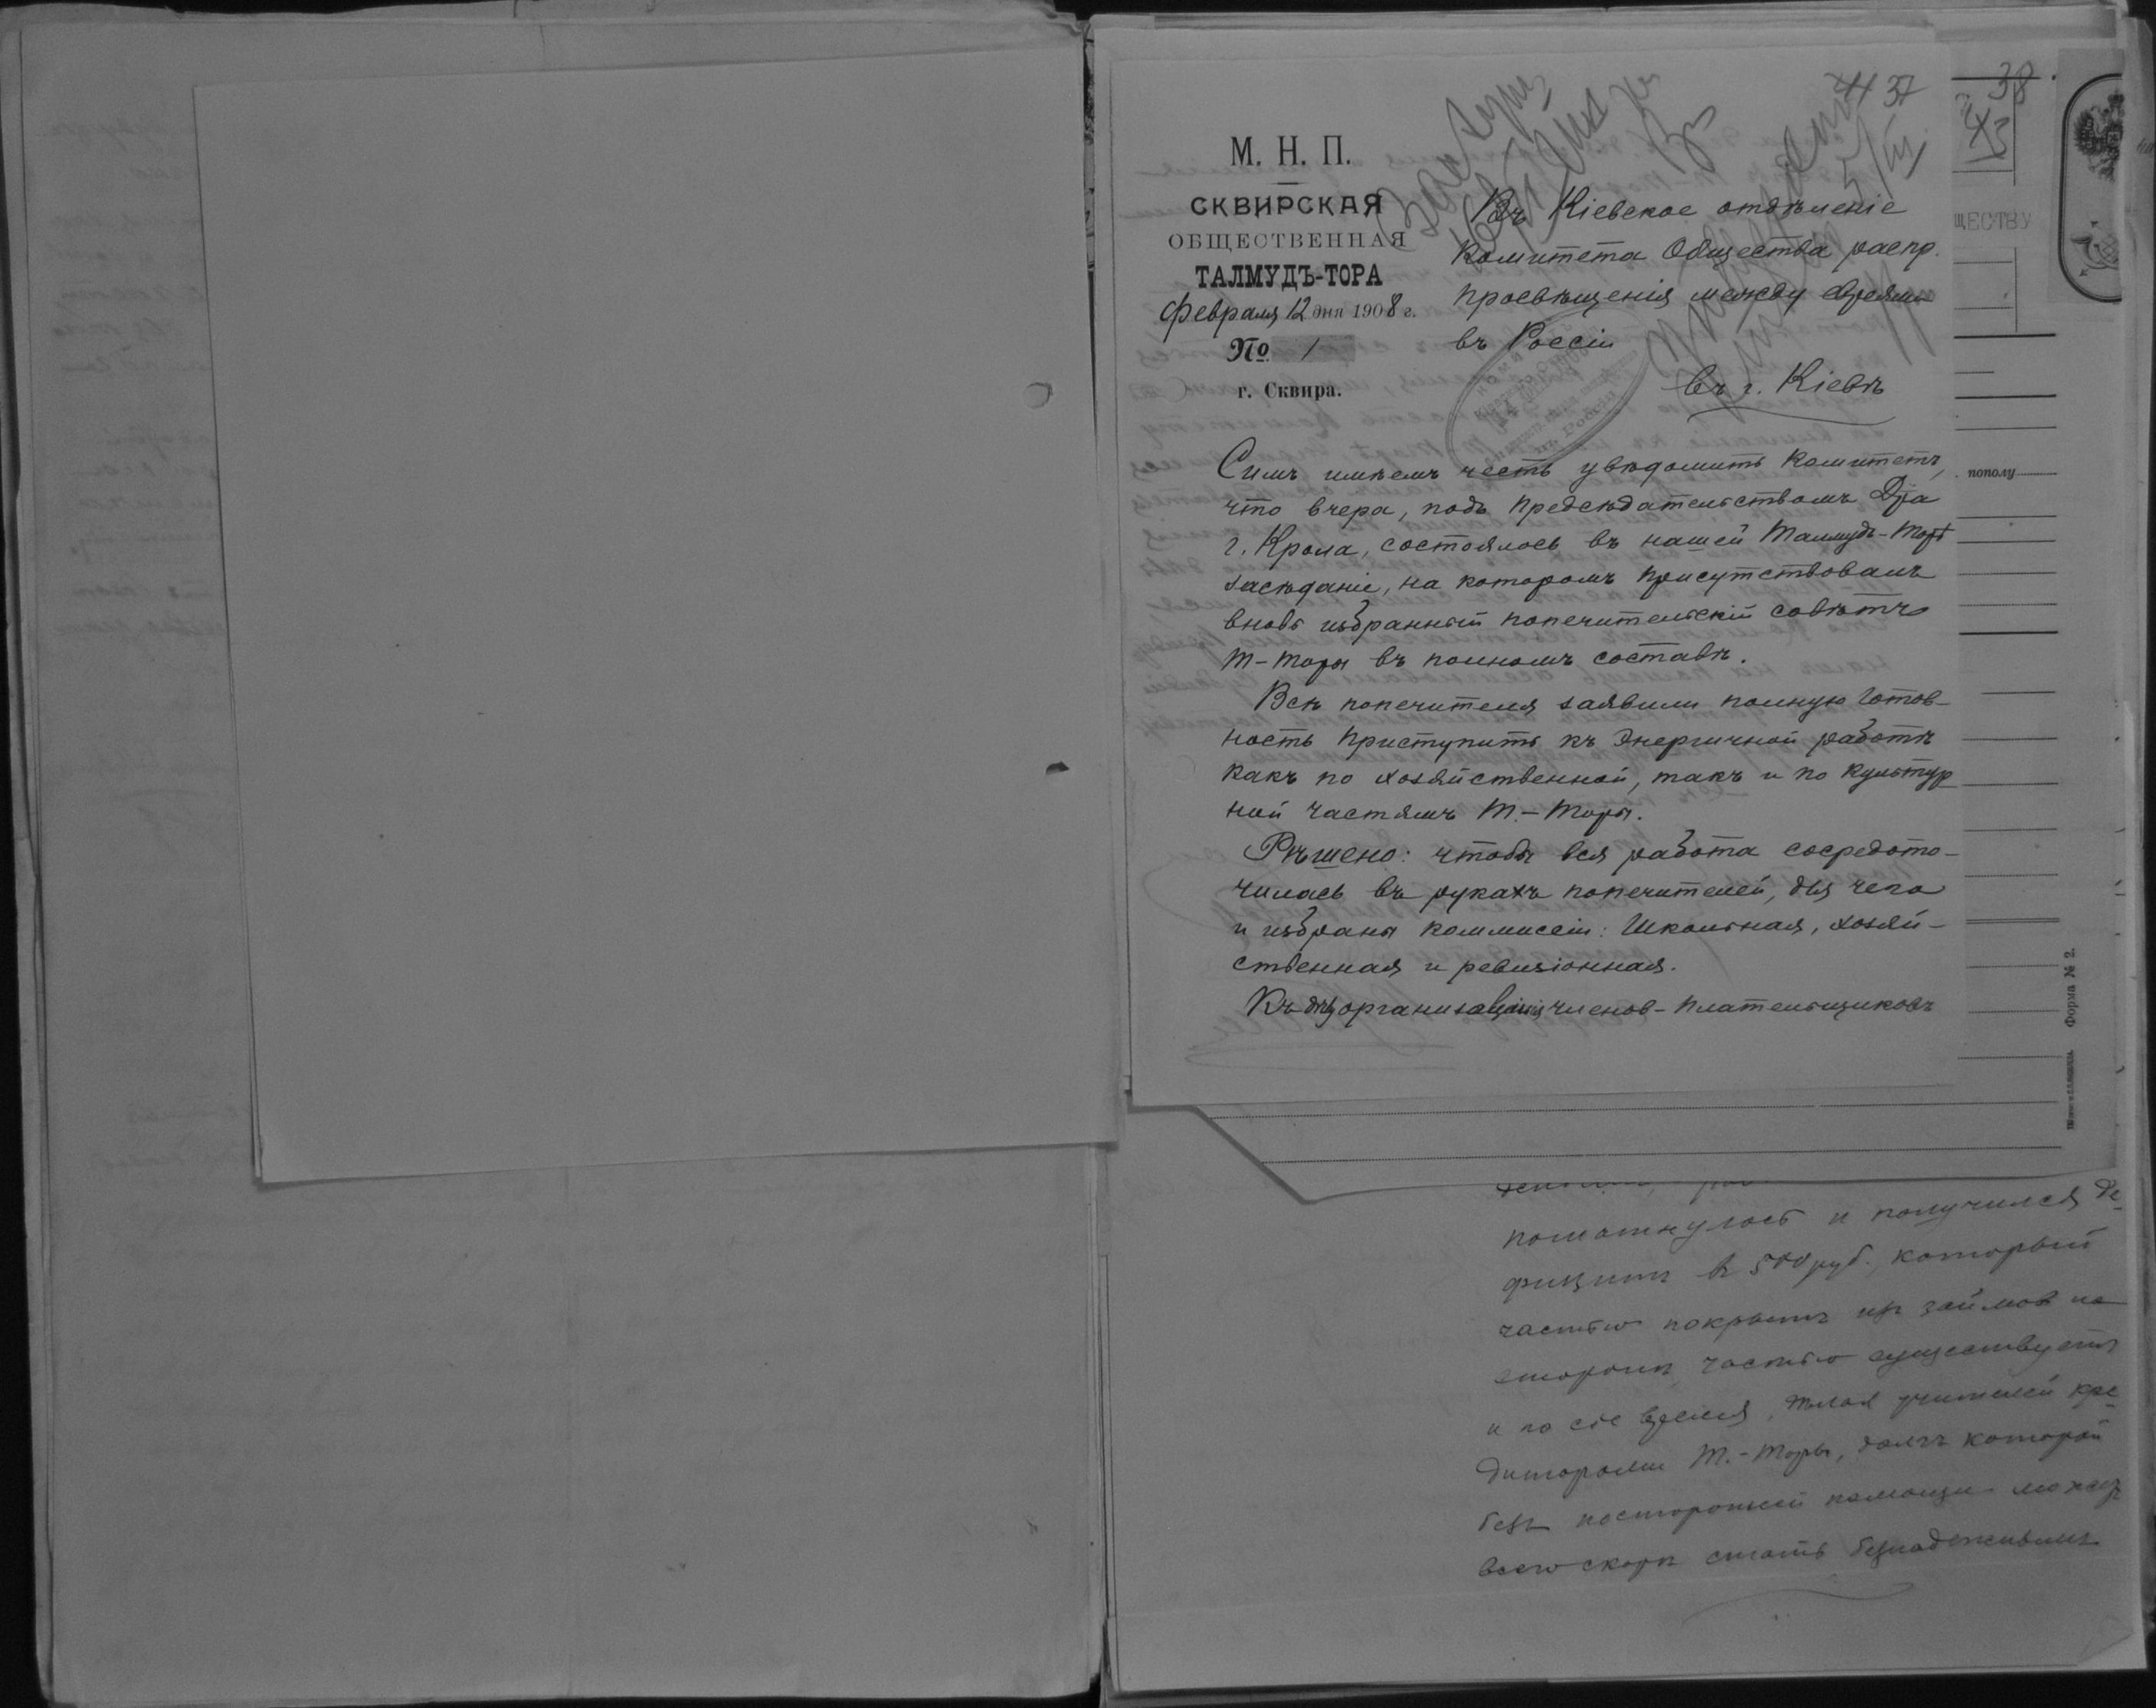 37
38
М. Н. П.
СКВИРСКАЯ
ОБЩЕСТВЕННАЯ
ТАЛМУДЪ-ТОРА
Февраля 12 дня 1908 г.
№ 1
г. Сквира.
Въ Кіевское отдѣленіе
Комитета Общества распр.
просвѣщенія между евреями
въ Россіи
въ г. Кіевѣ
Симъ имѣемъ честь увѣдомить Комитетъ,
что вчера, подъ предсѣдательствомъ Д-ра
г. Крола, состоялось въ нашей Талмудъ-Торѣ
засѣданіе, на которомъ присутствовалъ
вновь избранный попечительскій совѣтъ
Т-Торы въ полномъ составѣ.
Всѣ попечителя заявили полную готов-
ность приступить къ энергичной работѣ
какъ по хозяйственной, такъ и по культур
ной частямъ Т.-Торы.
Рѣшено: чтобы вся работа сосредото-
чилась въ рукахъ попечителей, для чего
и избраны коммисіи: Школьная, хозяй-
ственная и ревизіонная.
Къ организаціи членов-плательщиковъ
ЩЕСТВУ
пополу
Форма № 2.
пошатнулось и получился де-
фицитъ в 500 руб., который
частью покрытъ из займов на
сторонѣ, частью существуетъ
и по сіе время, учителей кре-
диторами Т.-Торы, долгъ которой
безъ посторонней помощи можетъ
скорѣ стать безнадежнымъ